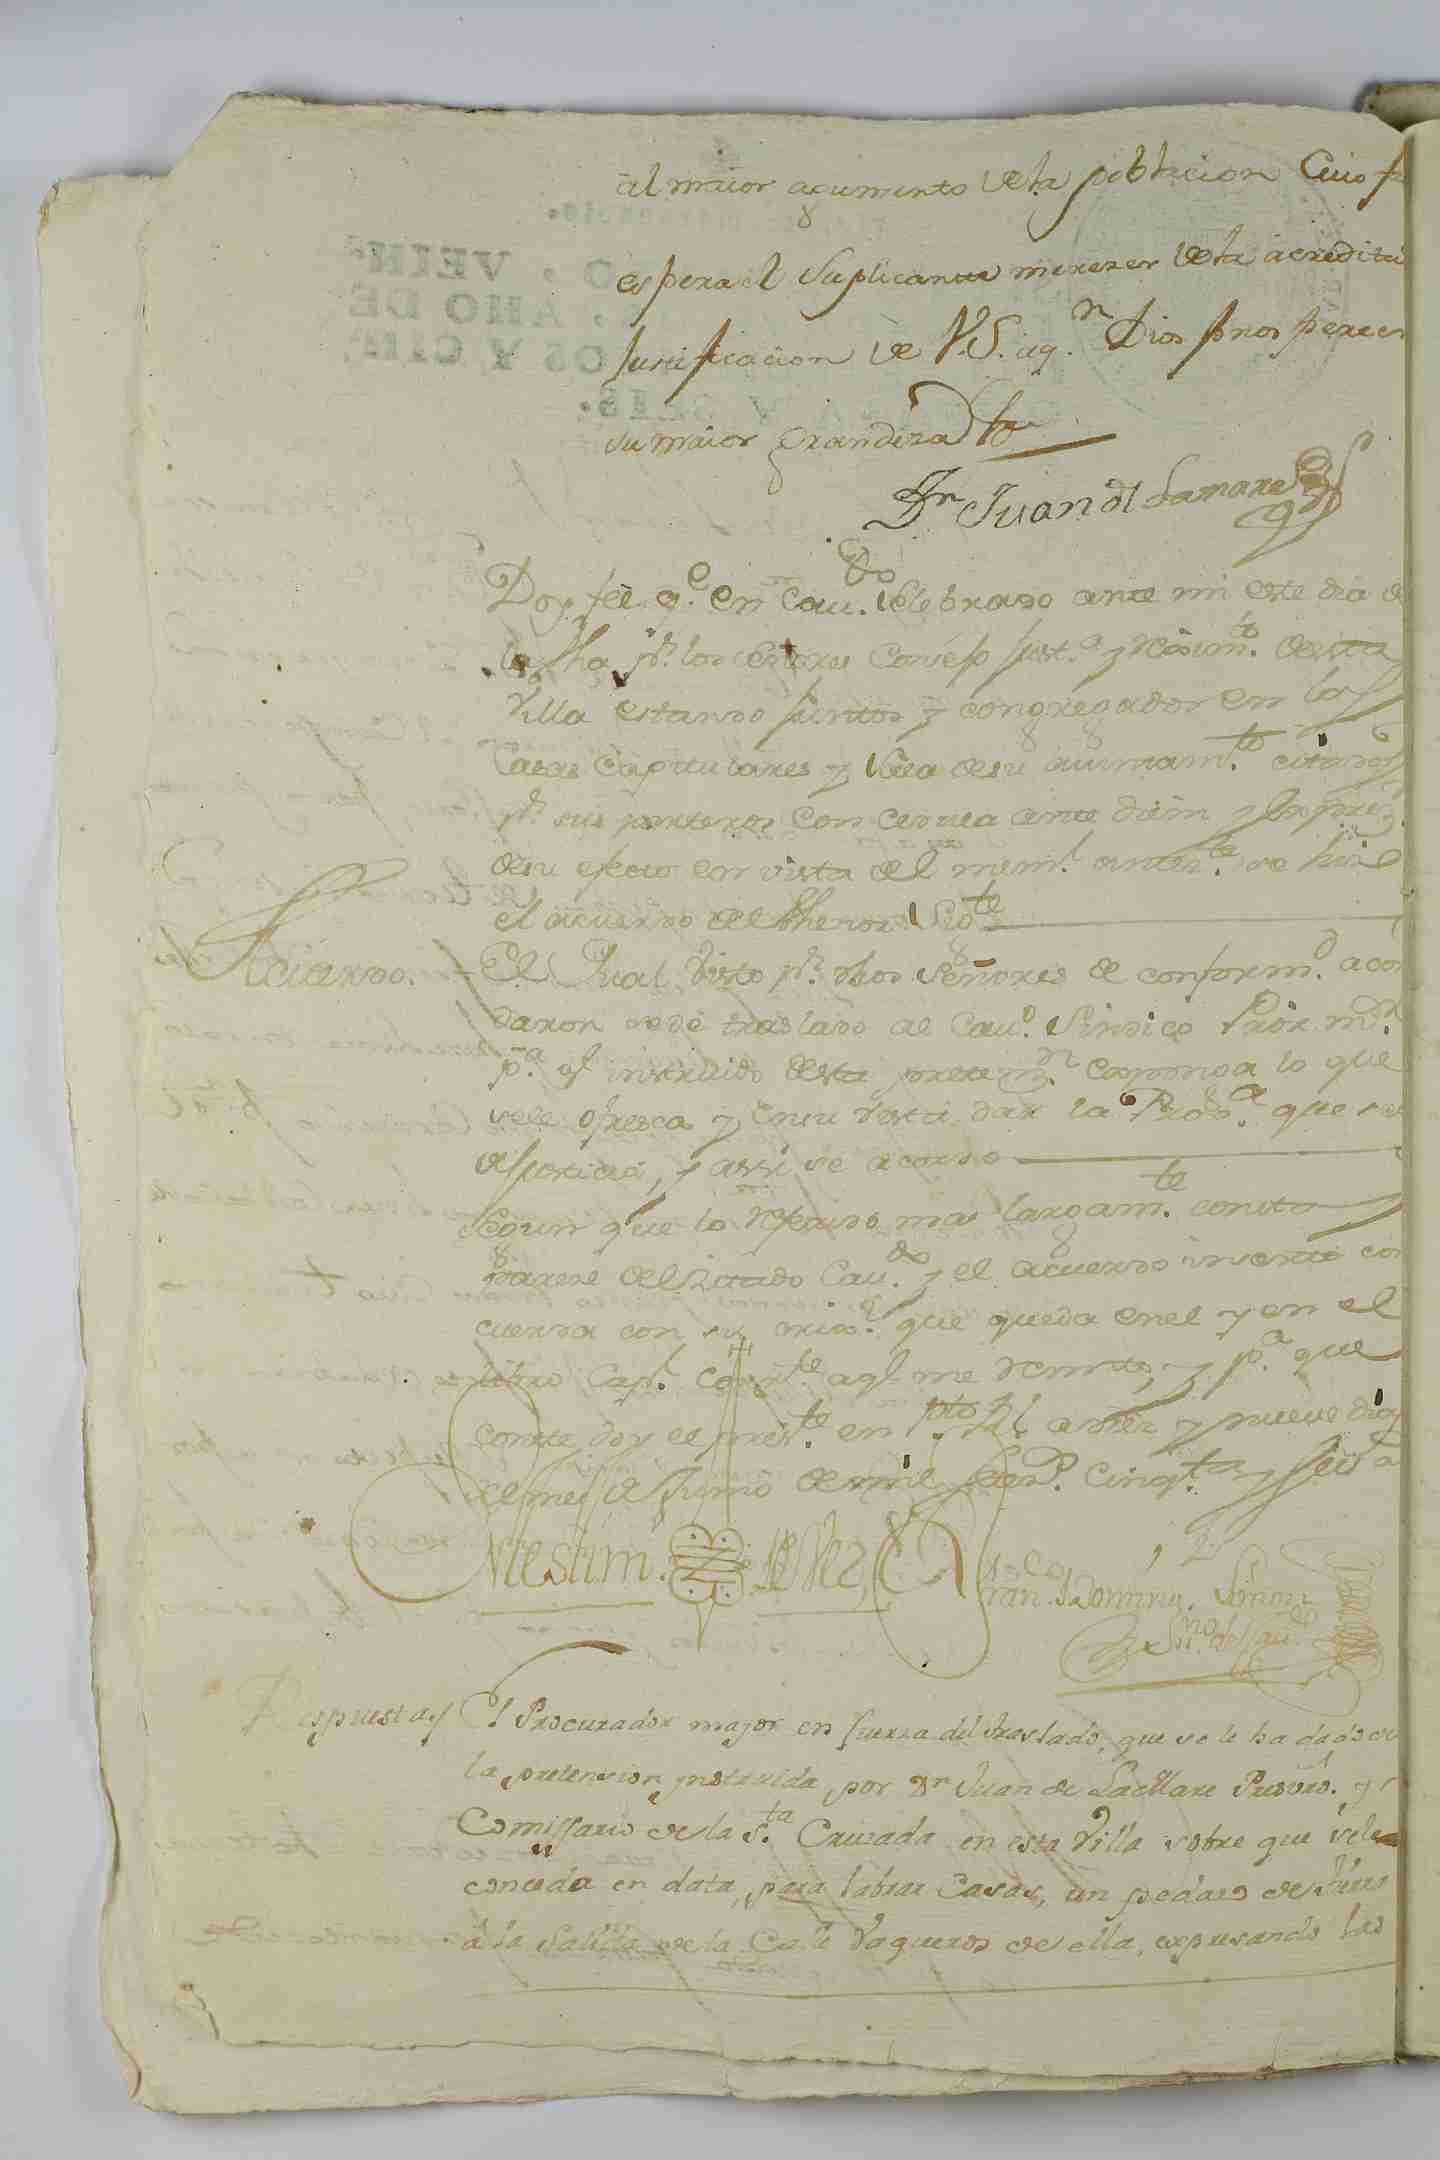 al maior aumento de la poblacion Cuio
espera el Suplicante merezer de la acredita
Justificacion de V.S. aq.n Dios prospere en
su maior Grandeza
Dr Juan de Lamare
Doy feè q.e en Cau.do Celebrado ante mi este dia de
la fha p.r los señores Consejo Just.a y reximto. desta
Villa estando juntos y congregados en las
Casas Capitulares y Sala de su aiuntam.to citados
p.r sus porteros con cedula ante diem
de su efecto en vista del mem.l anter.te se hizo
el acuerdo del thenor Sig.te
Acuerdo.
El Qual visto p.r dhos Señores de conform.d acor
daron se dè traslado al Cau.o Sindico Pror. m.or
p.a q.e instruido desta preten.n exponga lo que
se le ofresca y en su vista dar la Prov.a que
y assi se acordo
segun que lo referido mas largam.te consta y
pareze del zitado Cau.do y el acuerdo inserto con
cuerda con su orig.l que queda en el y en el
libro Cap.r Corr.te aq.e me remito, y p.a que
conste doy el pres.te en Pto R.l a diez y nueve dias
del mes de Junio de mil setez.s cinq.ta y seis a
Fran.co Doming.
SSno. del Cau.do
Respuesta
El Procurador mayor en fuerza del traslado, que se le ha dado de
la pretension instruida, por Dr Juan de La Mare Presvro. y
Comissario de la S.ta Cruzada en esta Villa sobre que sele
conceda en data, para labrar Casas, un pedazo de
à la Salida de la Calle Vaqueros de ella, expresando las